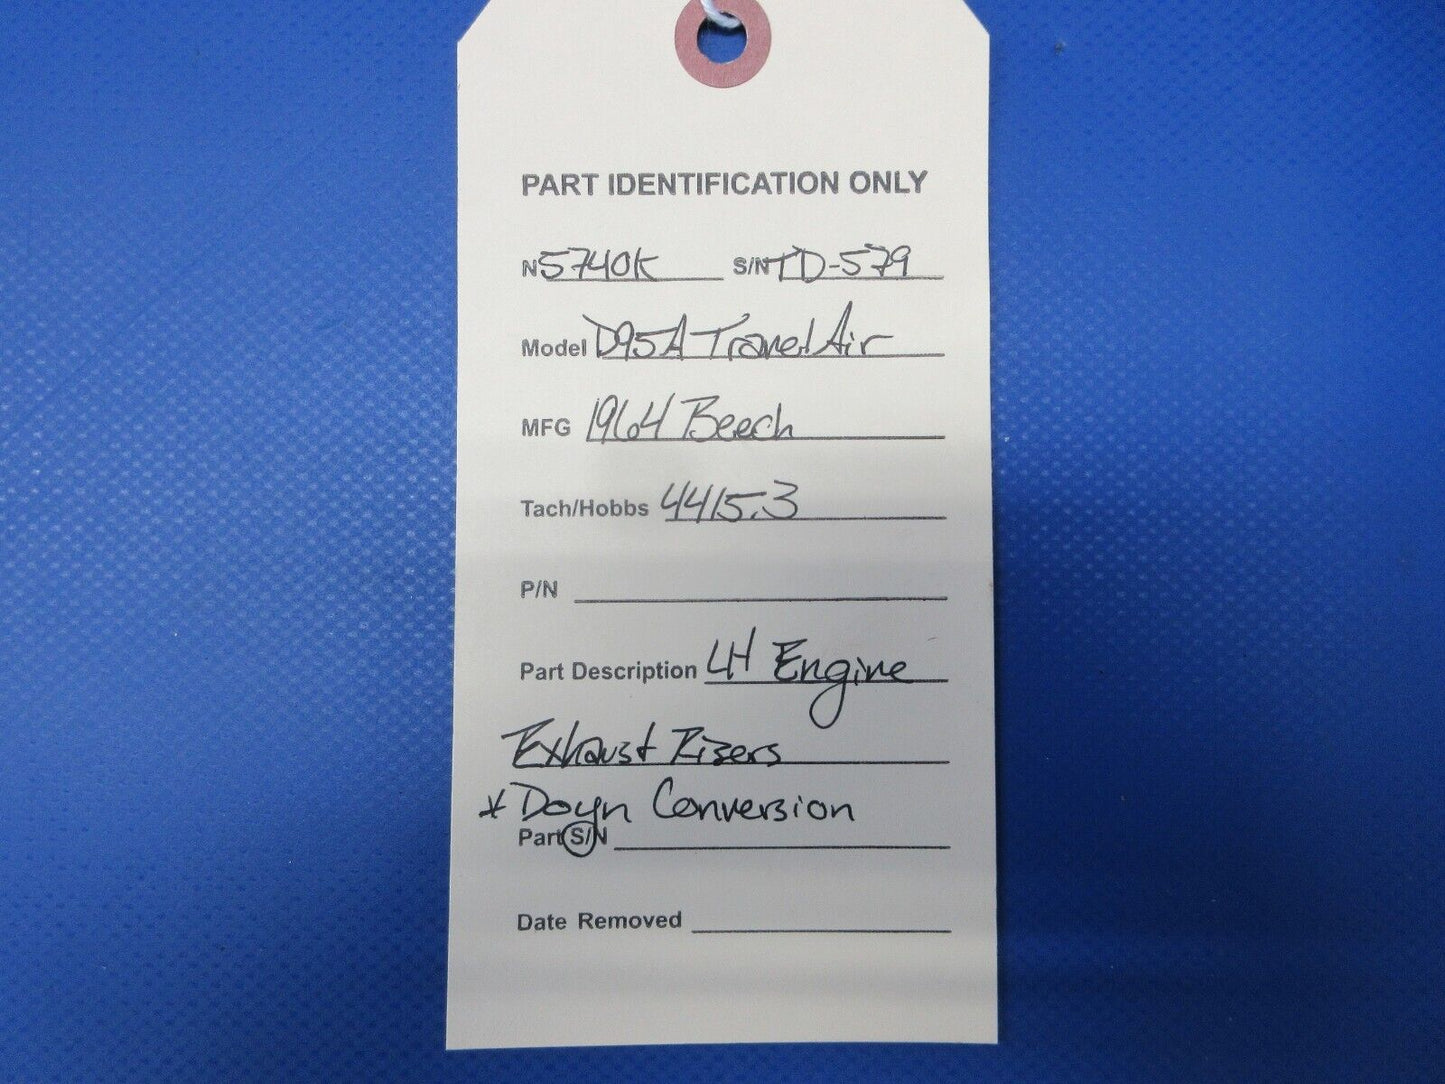 PART IDENTIFICATION ONLY
N5740K S/N TD-579
Model D95A Travel Air
MFG 1964 Beech
Tach/Hobbs 4415.3
P/N
Part Description LH Engine
Exhaust Risers
* Doyn Conversion
Part S/N
Date Removed